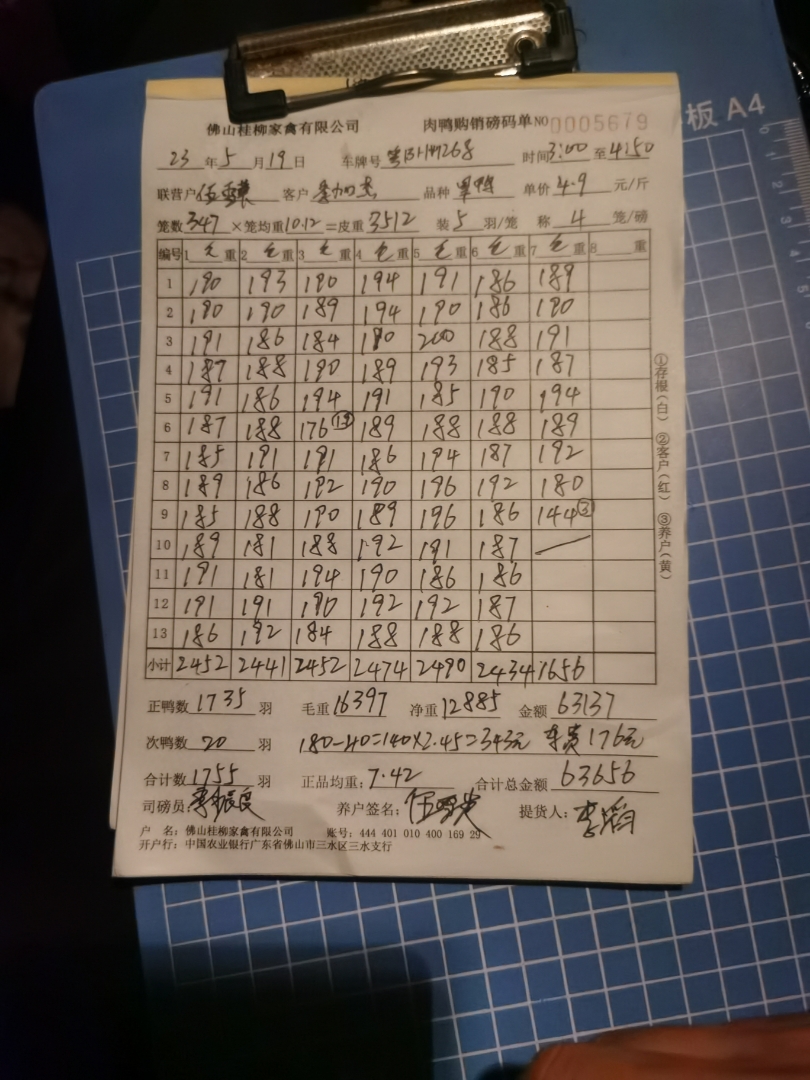 板 A4
佛山桂柳家禽有限公司 肉鸭购销磅码单 NO 0005679
23 年 5 月 19 日 车牌号 时间 3:00 至 4:50
联营户 客户 品种 单价 4.9 元/斤
笼数 347 ×笼均重 10.12 =皮重 3512 装 5 羽/笼 称 4 笼/磅
编号 1 毛 重 2 毛 重 3 毛 重 4 毛 重 5 毛 重 6 毛 重 7 毛 重 8 重
1 190 193 190 194 191 186 189
2 190 190 189 194 190 186 190
3 191 186 184 190 200 188 191
4 187 188 190 189 193 185 187
5 191 186 194 191 185 190 194
6 187 188 176 189 188 188 189
7 185 191 191 186 194 187 192
8 189 186 192 190 196 192 180
9 185 188 190 189 196 186 144
10 189 181 188 192 191 187
11 191 181 194 190 186 186
12 191 191 190 192 192 187
13 186 192 184 188 188 186
小计 2452 2441 2452 2474 2490 2434 1656
正鸭数 1735 羽 毛重 16397 净重 12885 金额 63137
次鸭数 20 羽 180-40=140×2.45=343元 车费176元
合计数 1755 羽 正品均重: 7.42 合计总金额 63656
司磅员: 养户签名: 提货人:
户 名: 佛山桂柳家禽有限公司 账号: 444 401 010 400 169 29
开户行: 中国农业银行广东省佛山市三水区三水支行
①存根(白) ②客户(红) ③养户(黄)